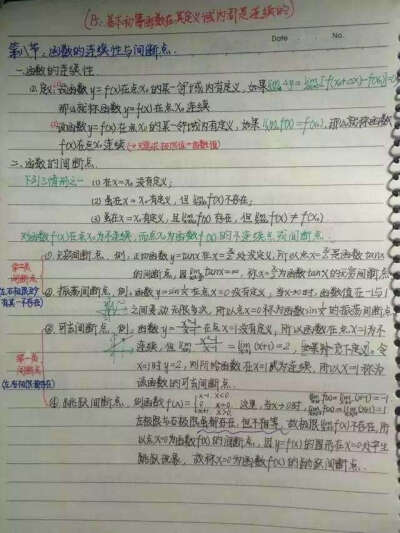 (ps: 基本初等函数在其定义域内都是连续的)
Date No.
第八节、函数的连续性与间断点.
一.函数的连续性
设函数y=f(x)在点x₀的某一邻域内有定义,如果lim△y=lim[f(x₀+△x)-f(x₀)]=0
那么就称函数y=f(x)在点x₀连续
设函数y=f(x)在点x₀的某一邻域内有定义,如果lim f(x)=f(x₀),那么就称函数
f(x)在点x₀连续
二、函数的间断点
下列三情形之一 (1)在x=x₀没有定义;
(2)虽在x=x₀有定义,但lim f(x)不存在;
(3)虽在x=x₀有定义,且lim f(x)存在,但lim f(x)≠f(x₀)
则函数f(x)在点x₀为不连续,而点x₀为函数f(x)的不连续点或间断点.
第二类间断点
(左右极限至少有其一不存在)
①无穷间断点.例,正切函数y=tanx在x=π/2处没定义,所以点x=π/2是函数tanx
的间断点,因lim tanx=∞,称x=π/2为函数tanx的无穷间断点
②振荡间断点.例,函数y=sin 1/x在点x=0没有定义,当x→0时,函数值在-1与1
之间变动无限多次,所以点x=0称为函数sin 1/x的振荡间断点
第一类间断点
(左右极限都存在)
③可去间断点.例,函数y=(x²-1)/(x-1)在点x=1没有定义,所以函数在点x=1为不
连续,但lim (x²-1)/(x-1)=lim(x+1)=2,如果补充定义:令
x=1时y=2,则所给函数在x=1成为连续,所以x=1称为
该函数的可去间断点.
④跳跃间断点.例函数f(x)={x-1, x<0 0, x=0 x+1, x>0 这里,当x→0时,lim f(x)=lim(x-1)=-1 lim f(x)=lim(x+1)=1
左极限与右极限虽都存在,但不相等,故极限lim f(x)不存在,所
以点x=0为函数f(x)的间断点,因y=f(x)的图形在x=0处产生
跳跃现象,故称x=0为函数f(x)的跳跃间断点.